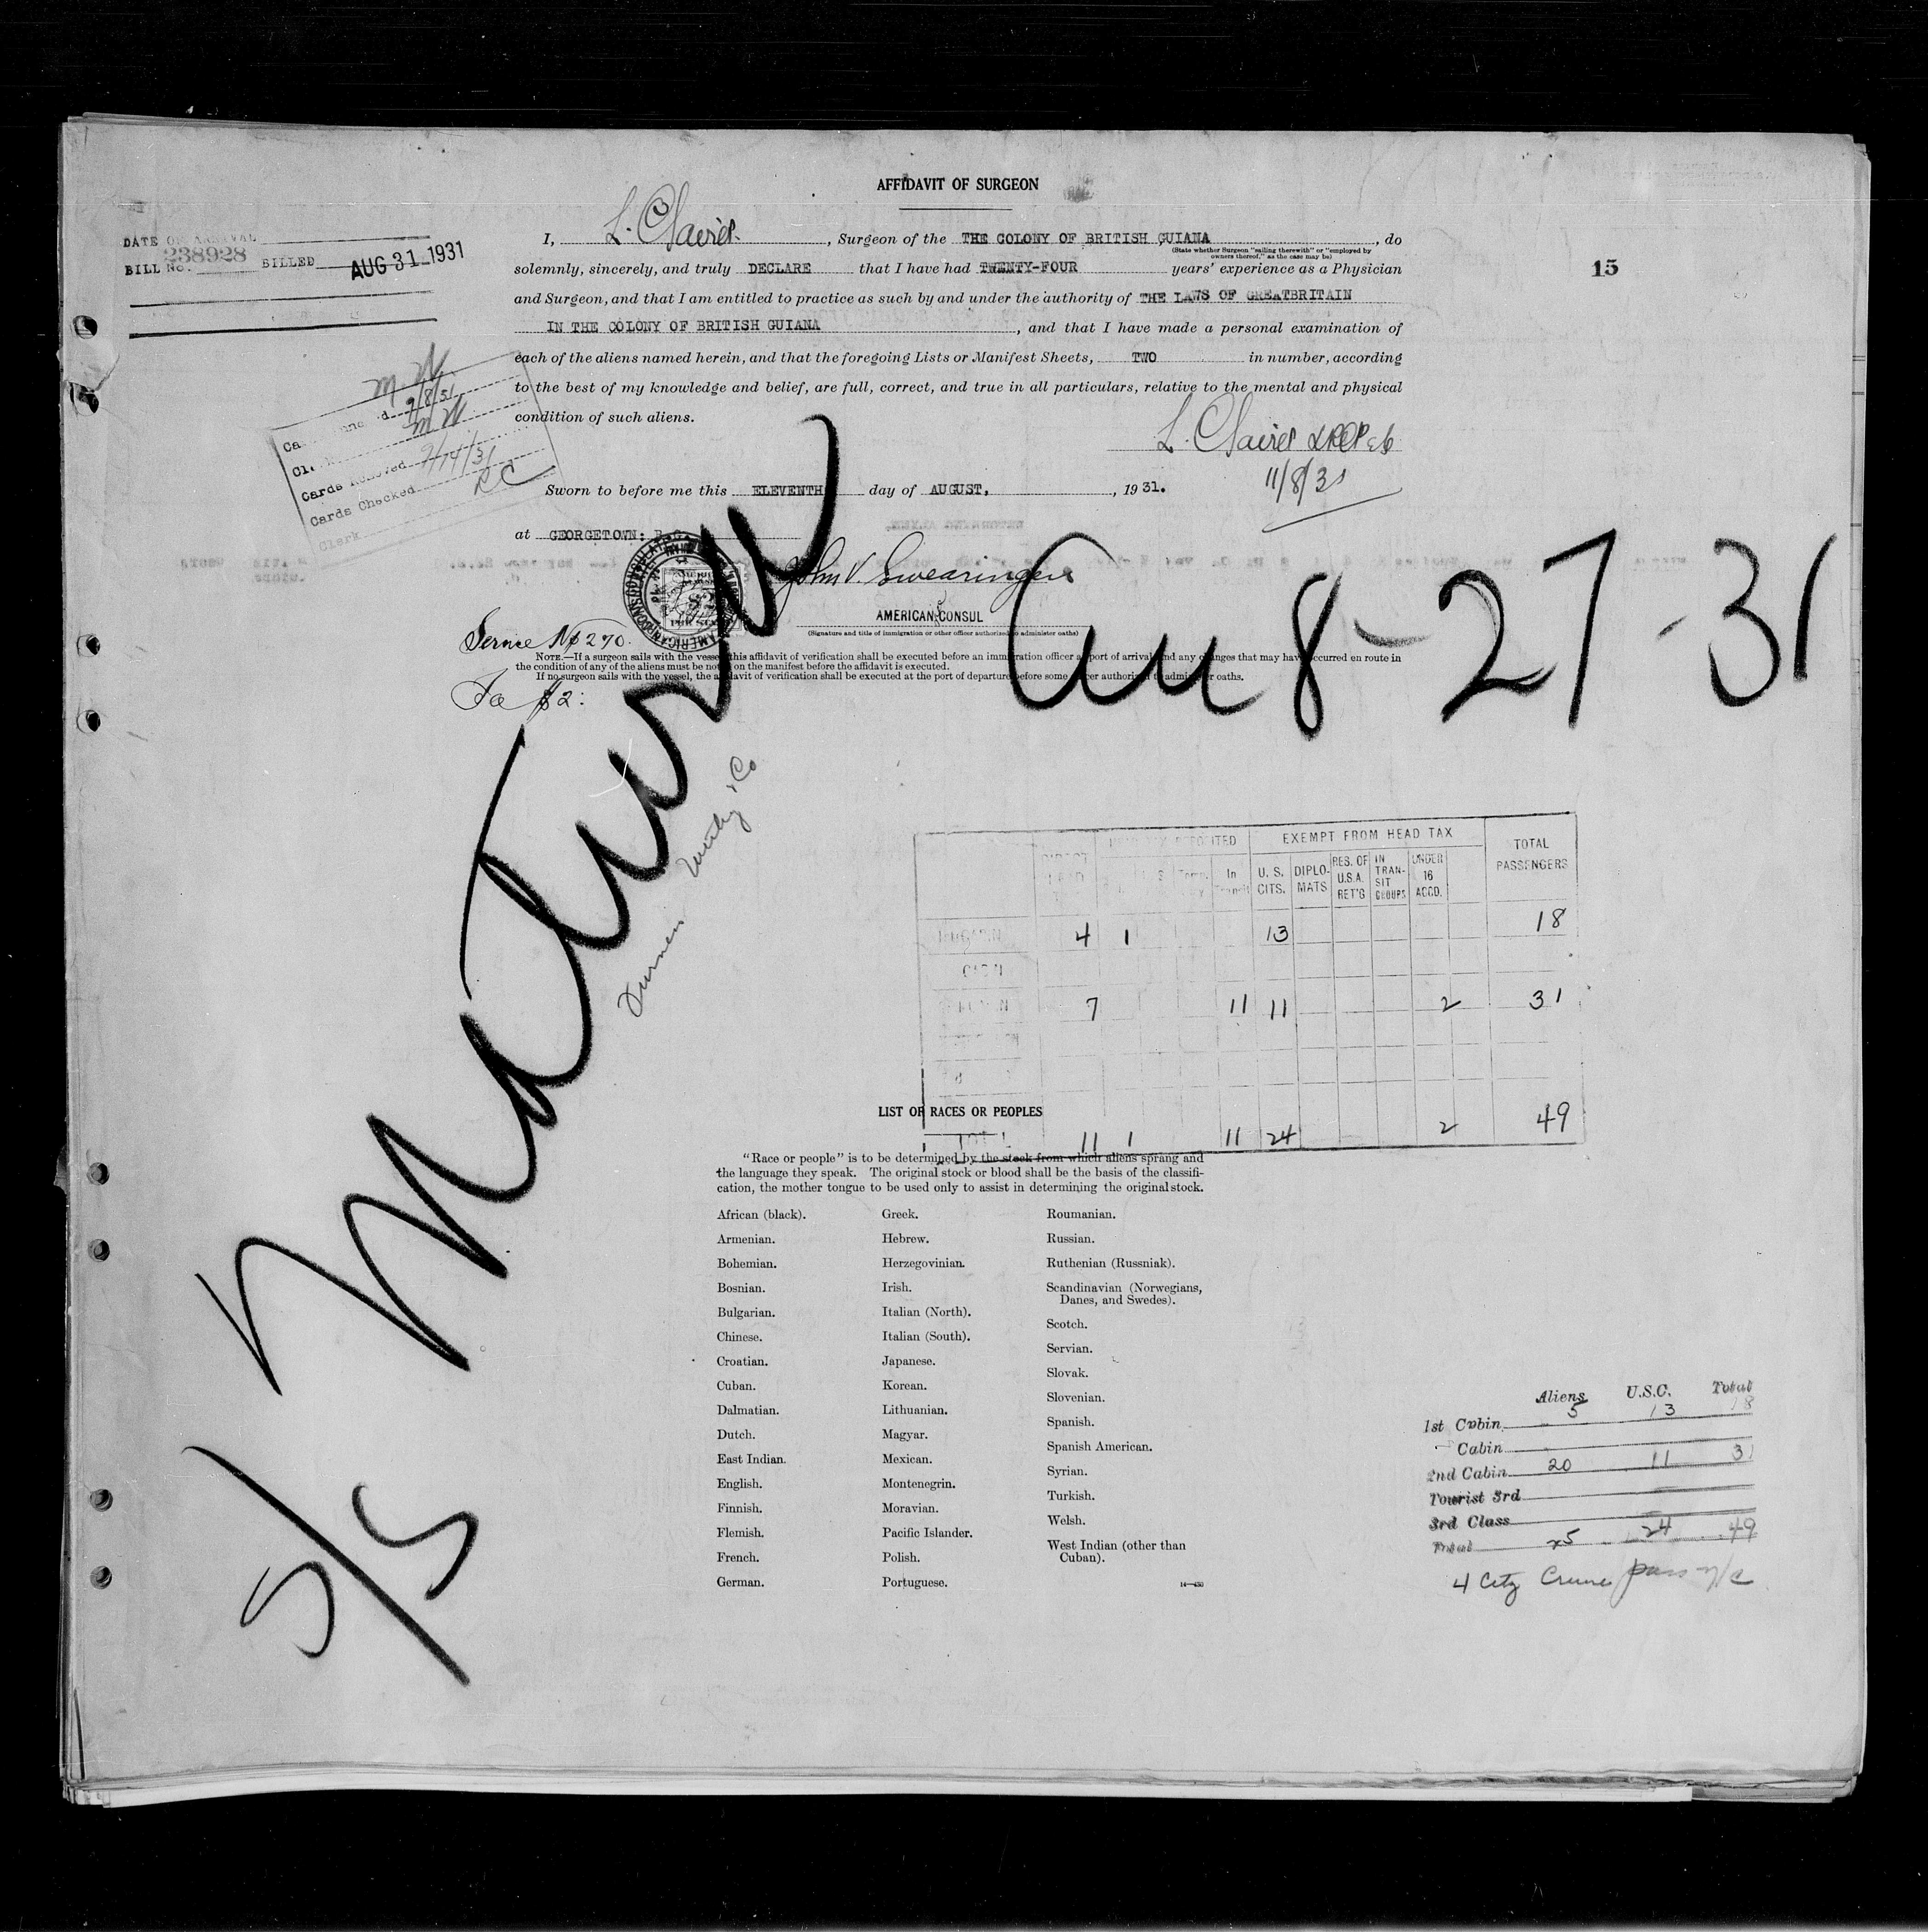 AFFIDAVIT OF SURGEON
DATE OF ARRIVAL
BILL No. 238928 BILLED AUG 31 1931
15
I, , Surgeon of the THE COLONY OF BRITISH GUIANA, do
(State whether Surgeon "sailing therewith" or "employed by
owners thereof," as the case may be)
solemnly, sincerely, and truly DECLARE that I have had TWENTY-FOUR years' experience as a Physician
and Surgeon, and that I am entitled to practice as such by and under the authority of THE LAWS OF GREATBRITAIN
IN THE COLONY OF BRITISH GUIANA, and that I have made a personal examination of
each of the aliens named herein, and that the foregoing Lists or Manifest Sheets, TWO in number, according
to the best of my knowledge and belief, are full, correct, and true in all particulars, relative to the mental and physical
condition of such aliens.
11/8/31
M W
9/8/31
M W
Cards Removed 9/14/31
Cards Checked RC
Clerk
Sworn to before me this ELEVENTH day of AUGUST, , 19 31.
at GEORGETOWN: B.G.
John V. Swearingen
AMERICAN CONSUL
(Signature and title of immigration or other officer authorized to administer oaths)
Service No 270.
NOTE.—If a surgeon sails with the vessel, this affidavit of verification shall be executed before an immigration officer at port of arrival and any changes that may have occurred en route in
the condition of any of the aliens must be noted on the manifest before the affidavit is executed.
If no surgeon sails with the vessel, the affidavit of verification shall be executed at the port of departure before some officer authorized to administer oaths.
Fee $2:
S/S Maturin
8-27-31
EXEMPT FROM HEAD TAX
TOTAL PASSENGERS
In Transit
U. S. CITS.
DIPLOMATS
RES. OF U.S.A. RET'G
IN TRANSIT GROUPS
UNDER 16 ACCD.
4 1 13 18
7 11 11 2 31
TOTAL 11 1 11 24 2 49
LIST OF RACES OR PEOPLES
"Race or people" is to be determined by the stock from which aliens sprang and
the language they speak. The original stock or blood shall be the basis of the classifi-
cation, the mother tongue to be used only to assist in determining the original stock.
African (black).
Armenian.
Bohemian.
Bosnian.
Bulgarian.
Chinese.
Croatian.
Cuban.
Dalmatian.
Dutch.
East Indian.
English.
Finnish.
Flemish.
French.
German.
Greek.
Hebrew.
Herzegovinian.
Irish.
Italian (North).
Italian (South).
Japanese.
Korean.
Lithuanian.
Magyar.
Mexican.
Montenegrin.
Moravian.
Pacific Islander.
Polish.
Portuguese.
Roumanian.
Russian.
Ruthenian (Russniak).
Scandinavian (Norwegians,
Danes, and Swedes).
Scotch.
Servian.
Slovak.
Slovenian.
Spanish.
Spanish American.
Syrian.
Turkish.
Welsh.
West Indian (other than
Cuban).
Aliens U.S.C. Total
1st Cabin 5 13 18
Cabin
2nd Cabin 20 11 31
Tourist 3rd
3rd Class
Total 25 24 49